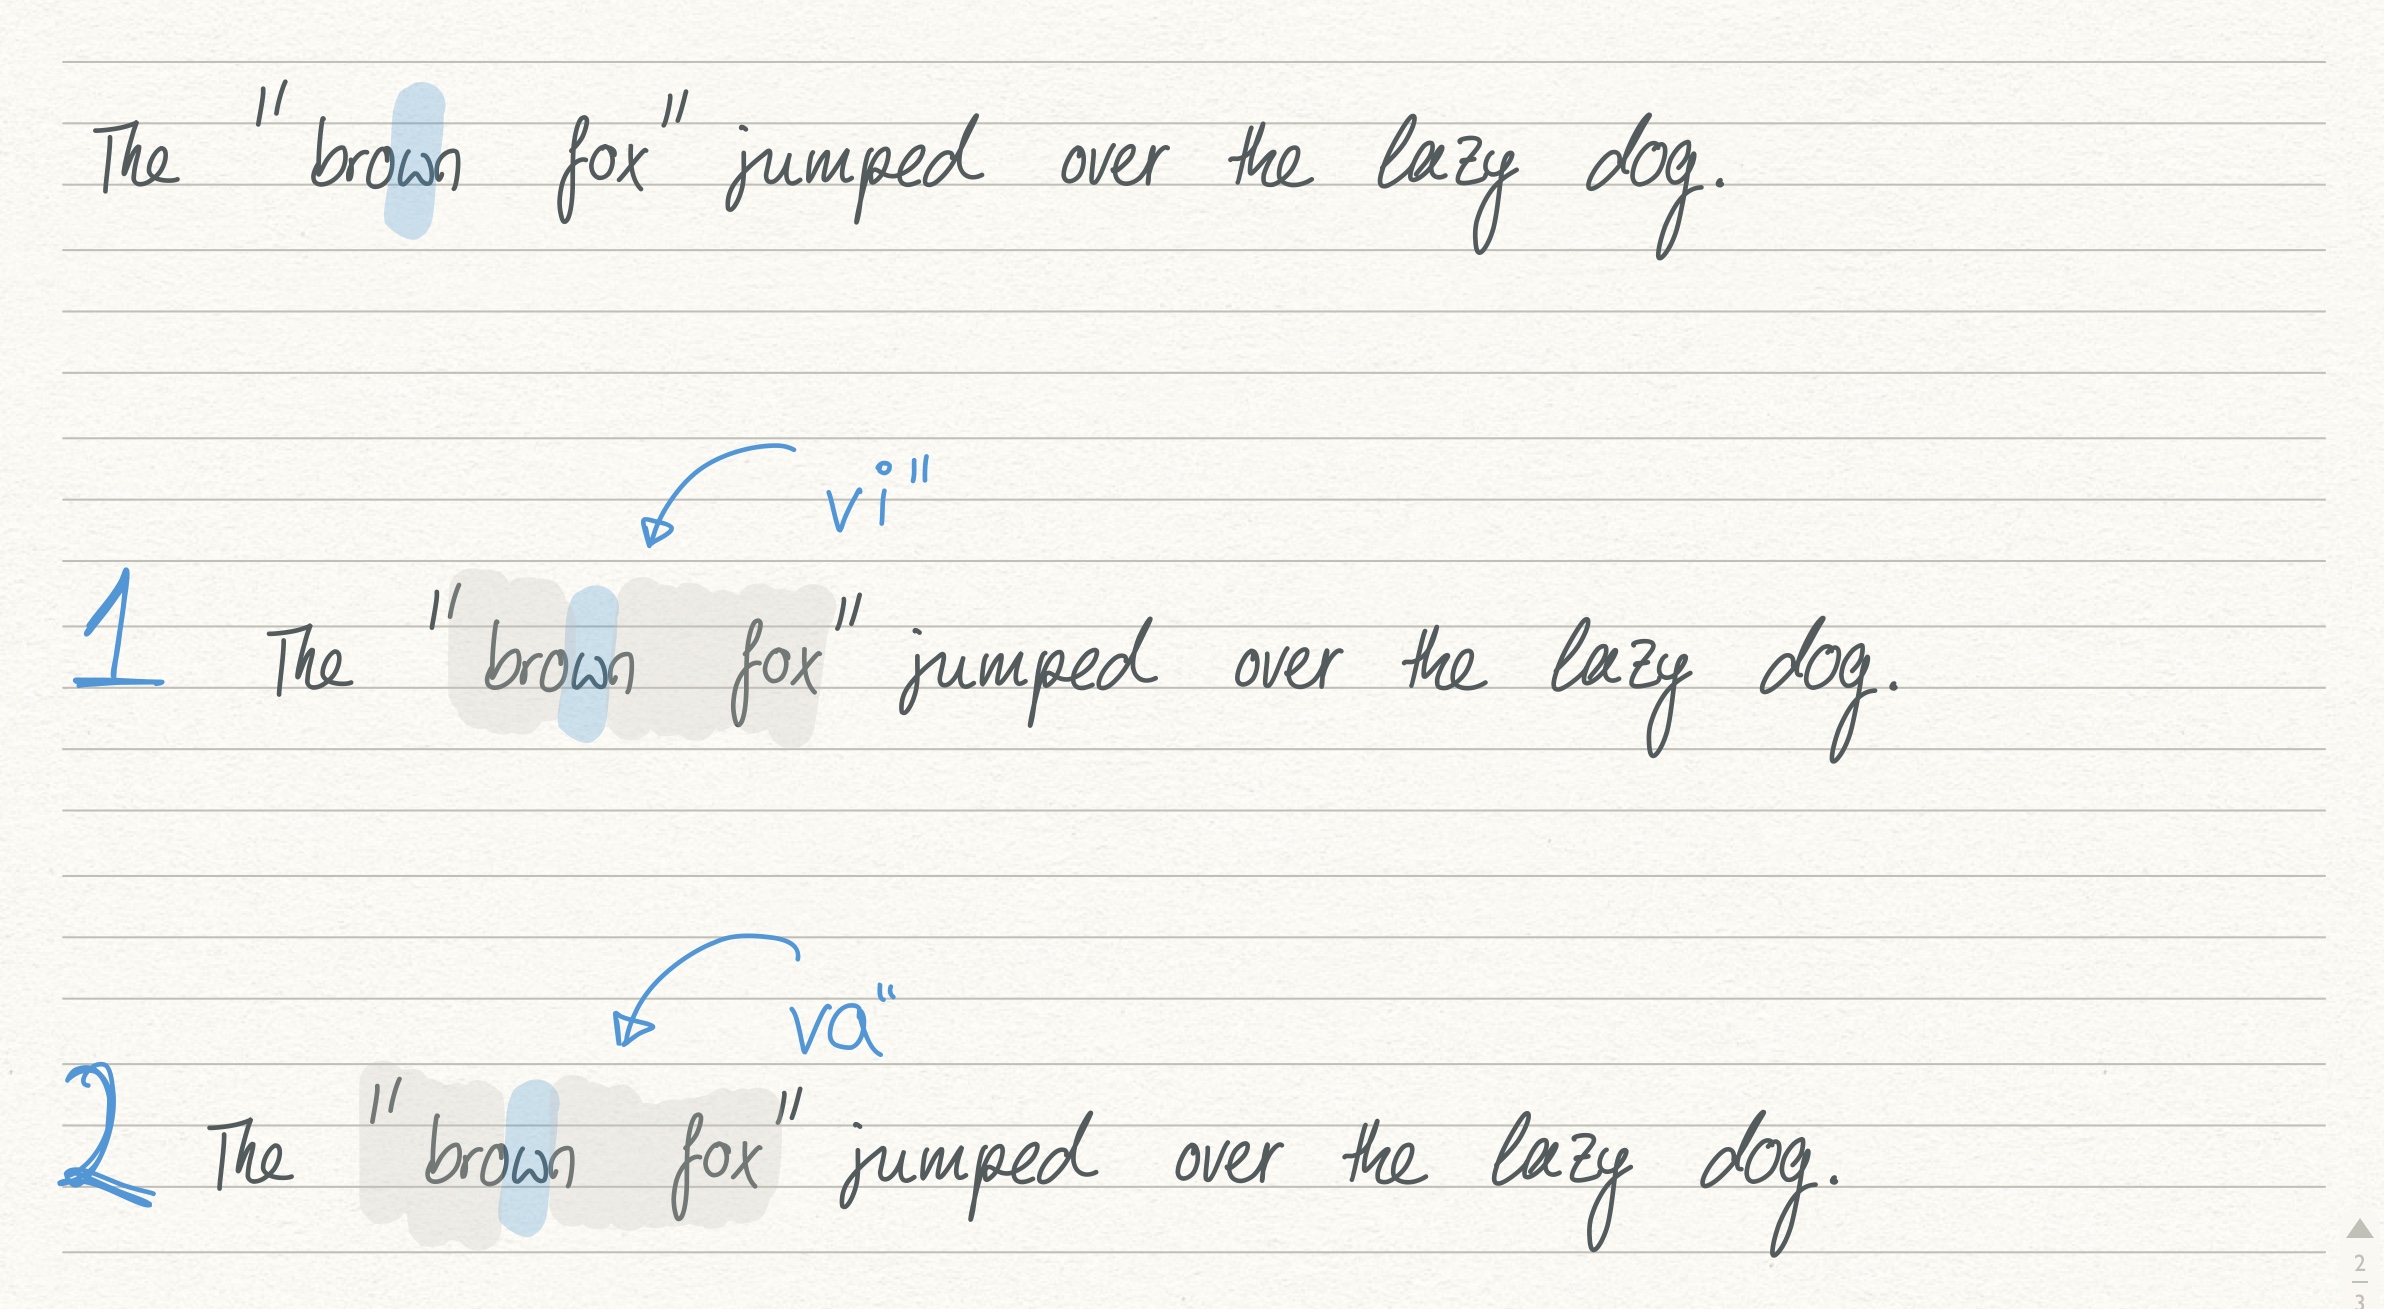 The "brown fox" jumped over the lazy dog.
vi"
1 The "brown fox" jumped over the lazy dog.
va"
2 The "brown fox" jumped over the lazy dog.
2
3